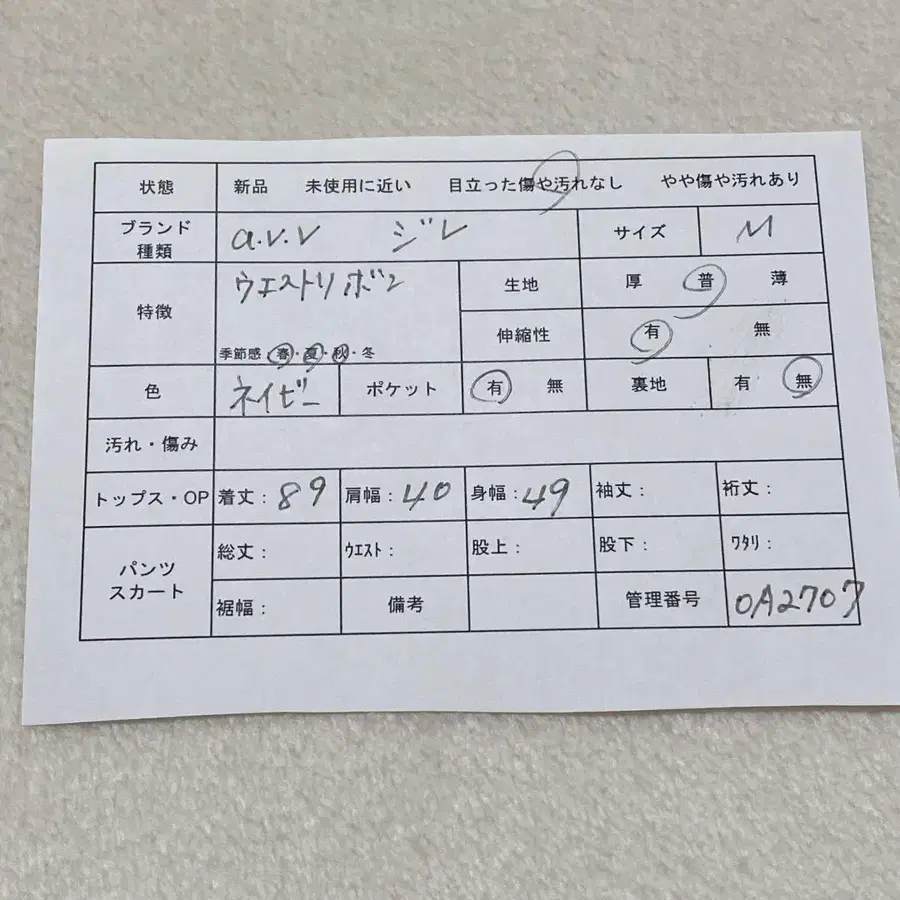 状態 新品 未使用に近い 目立った傷や汚れなし やや傷や汚れあり
ブランド
種類 a.v.v ジレ サイズ M
特徴 ウエストリボン 生地 厚 普 薄
伸縮性 有 無
季節感・春・夏・秋・冬
色 ネイビー ポケット 有 無 裏地 有 無
汚れ・傷み
トップス・OP 着丈: 89 肩幅: 40 身幅: 49 袖丈: 裄丈:
パンツ
スカート 総丈: ウエスト: 股上: 股下: ワタリ:
裾幅: 備考 管理番号 0A2707